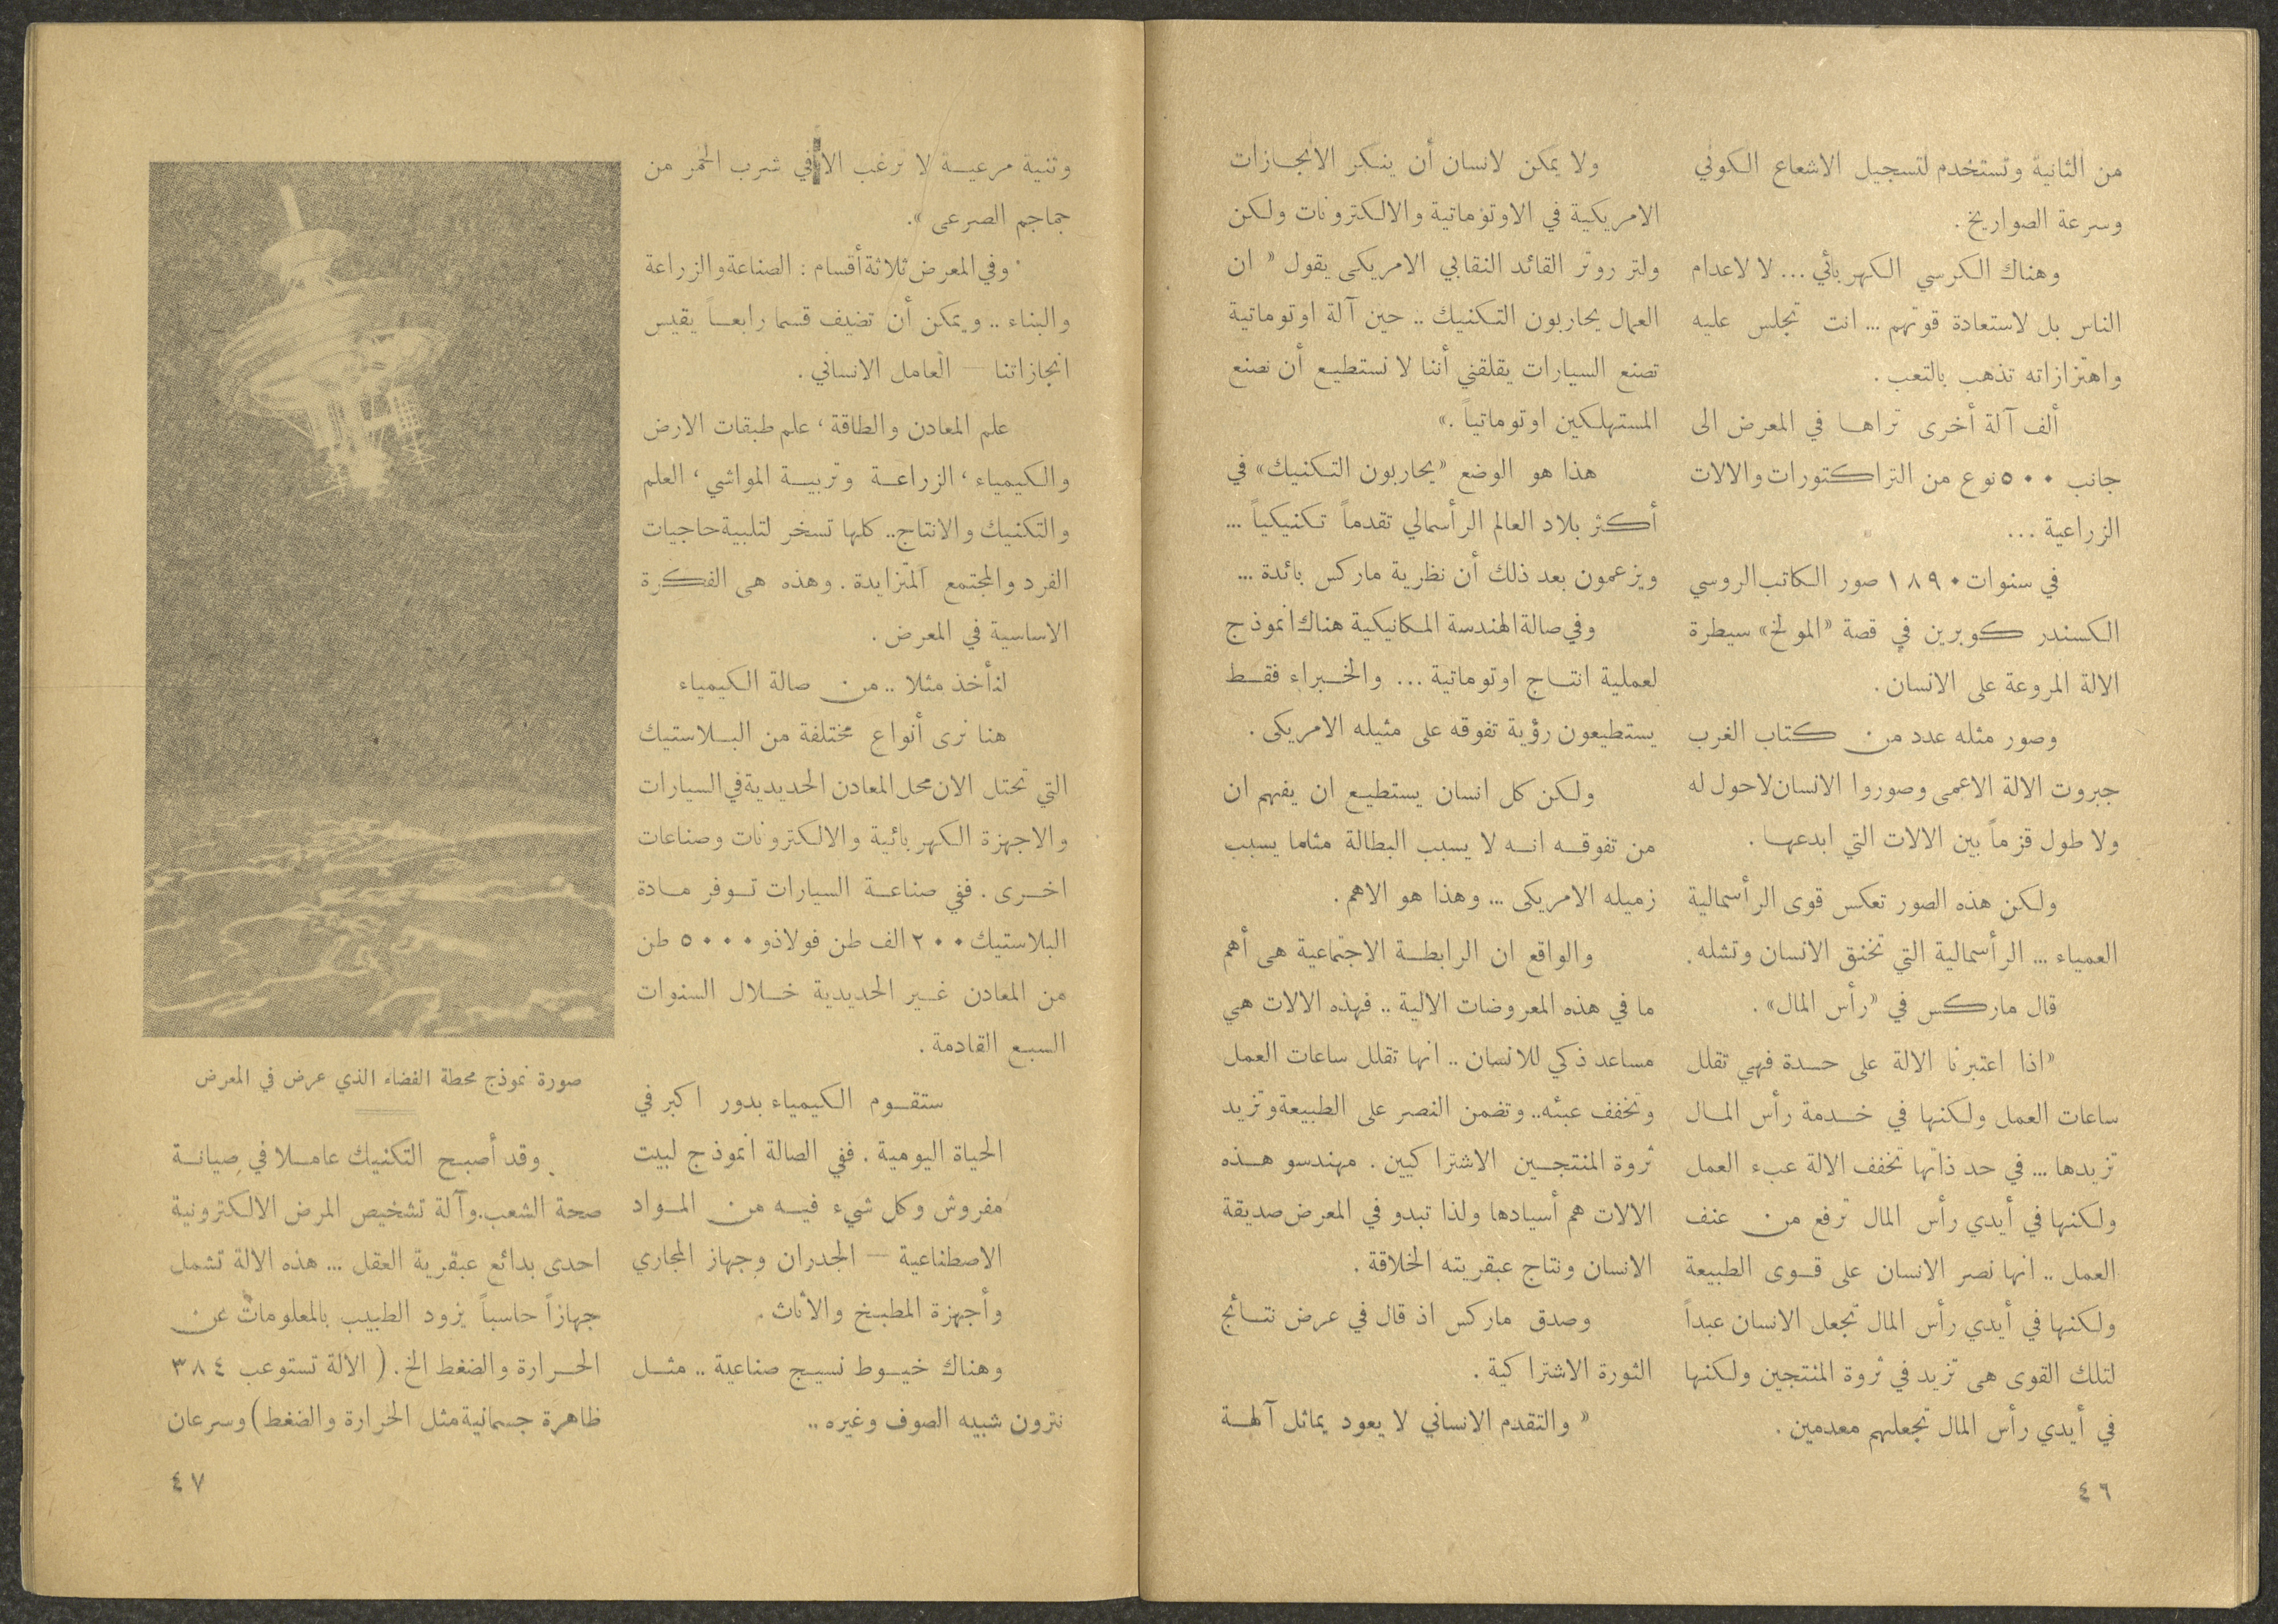 من الثانية وتستخدم لتسجيل الاشعاع الكوني
وسرعة الصواريخ .
وهناك الكرسي الكهربائي ... لا لاعدام
الناس بل لاستعادة قوتهم ... انت تجلس عليه
واهتزازاته تذهب بالتعب .
ألف آلة أخرى تراها في المعرض الى
جانب ٥٠٠ نوع من التراكتورات والالات
الزراعية ...
في سنوات ١٨٩٠ صور الكاتب الروسي
الكسندر كوبرين في قصة «المولخ» سيطرة
الالة المروعة على الانسان .
وصور مثله عدد من كتاب الغرب
جبروت الالة الاعمى وصوروا الانسان لاحول له
ولا طول قزماً بين الالات التي ابدعها .
ولكن هذه الصور تعكس قوى الرأسمالية
العمياء ... الرأسمالية التي تخنق الانسان وتشله .
قال ماركس في «رأس المال» .
«اذا اعتبرنا الالة على حدة فهي تقلل
ساعات العمل ولكنها في خدمة رأس المال
تزيدها ... في حد ذاتها تخفف الالة عبء العمل
ولكنها في أيدي رأس المال ترفع من عنف
العمل .. انها نصر الانسان على قوى الطبيعة
ولكنها في أيدي رأس المال تجعل الانسان عبداً
لتلك القوى هى تزيد في ثروة المنتجين ولكنها
في أيدي رأس المال تجعلهم معدمين .
٤٦
ولا يمكن لانسان أن ينكر الانجازات
الامريكية في الاوتوماتية والالكترونات ولكن
ولتر روتر القائد النقابي الامريكى يقول « ان
العمال يحاربون التكنيك .. حين آلة اوتوماتية
تصنع السيارات يقلقني أننا لا نستطيع أن نصنع
المستهلكين اوتوماتياً .»
هذا هو الوضع «يحاربون التكنيك» في
أكثر بلاد العالم الرأسمالي تقدماً تكنيكياً ...
ويزعمون بعد ذلك أن نظرية ماركس بائدة ...
وفي صالة الهندسة المكانيكية هناك انموذج
لعملية انتاج اوتوماتية ... والخبراء فقط
يستطيعون رؤية تفوقه على مثيله الامريكى .
ولكن كل انسان يستطيع ان يفهم ان
من تفوقه انه لا يسبب البطالة مثلما يسبب
زميله الامريكى ... وهذا هو الاهم .
والواقع ان الرابطة الاجتماعية هى أهم
ما في هذه المعروضات الالية .. فهذه الالات هي
مساعد ذكي للانسان .. انها تقلل ساعات العمل
وتخفف عبئه .. وتضمن النصر على الطبيعة وتزيد
ثروة المنتجين الاشتراكيين . مهندسو هذه
الالات هم أسيادها ولذا تبدو في المعرض صديقة
الانسان ونتاج عبقريته الخلاقة .
وصدق ماركس اذ قال في عرض نتائج
الثورة الاشتراكية .
« والتقدم الانساني لا يعود يماثل آلهة
وثنية مرعية لا ترغب الا في شرب الخمر من
جماجم الصرعى ».
وفي المعرض ثلاثة أقسام : الصناعة والزراعة
والبناء .. ويمكن أن تضيف قسما رابعاً يقيس
انجازاتنا — العامل الانساني .
علم المعادن والطاقة ، علم طبقات الارض
والكيمياء ، الزراعة وتربية المواشي ، العلم
والتكنيك والانتاج .. كلها تسخر لتلبية حاجيات
الفرد والمجتمع المتزايدة . وهذه هى الفكرة
الاساسية في المعرض .
لنأخذ مثلا .. من صالة الكيمياء
هنا نرى أنواع مختلفة من البلاستيك
التي تحتل الان محل المعادن الحديدية في السيارات
والاجهزة الكهربائية والالكترونات وصناعات
اخرى . ففي صناعة السيارات توفر مادة
البلاستيك ٢٠٠ الف طن فولاذ و ٥٠٠٠ طن
من المعادن غير الحديدية خلال السنوات
السبع القادمة .
ستقوم الكيمياء بدور اكبر في
الحياة اليومية . ففي الصالة انموذج لبيت
مفروش وكل شيء فيه من المواد
الاصطناعية — الجدران وجهاز المجاري
وأجهزة المطبخ والأثاث .
وهناك خيوط نسيج صناعية .. مثل
نترون شبيه الصوف وغيره ..
صورة نموذج محطة الفضاء الذي عرض في المعرض
وقد أصبح التكنيك عاملا في صيانة
صحة الشعب . وآلة تشخيص المرض الالكترونية
احدى بدائع عبقرية العقل ... هذه الالة تشمل
جهازاً حاسباً يزود الطبيب بالمعلومات عن
الحرارة والضغط الخ . ( الالة تستوعب ٣٨٤
ظاهرة جسمانية مثل الحرارة والضغط) وسرعان
٤٧